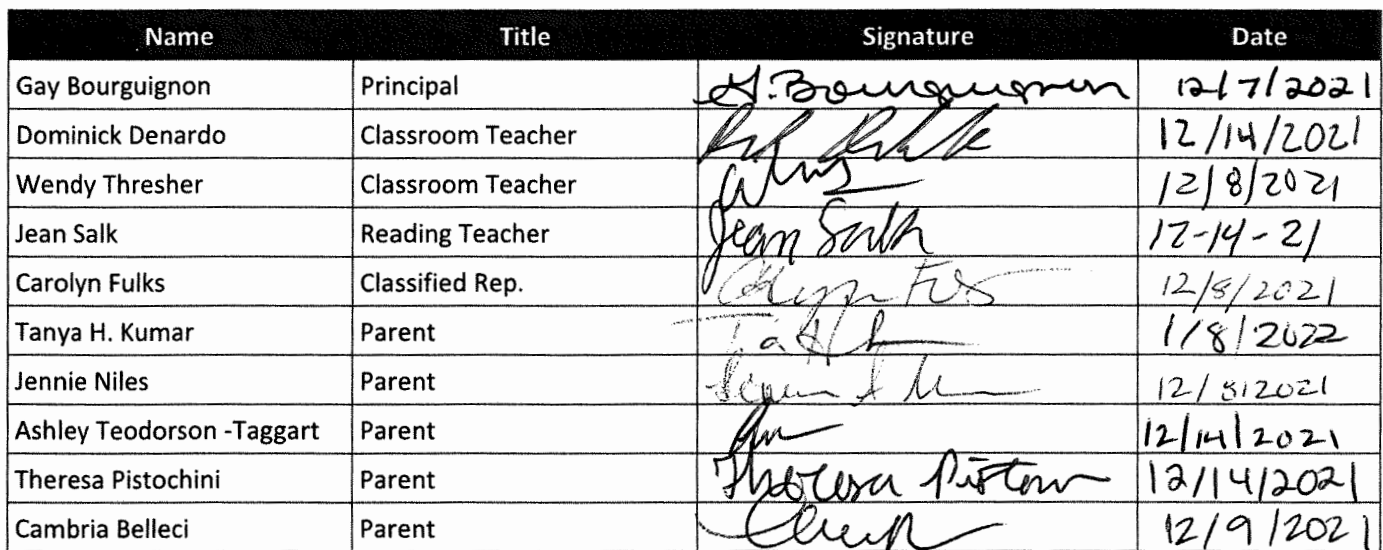 Name Title Signature Date
Gay Bourguignon Principal G. Bourguignon 12/7/2021
Dominick Denardo Classroom Teacher 12/14/2021
Wendy Thresher Classroom Teacher 12/8/2021
Jean Salk Reading Teacher Jean Salk 12-14-21
Carolyn Fulks Classified Rep. 12/8/2021
Tanya H. Kumar Parent 1/8/2022
Jennie Niles Parent 12/8/2021
Ashley Teodorson -Taggart Parent 12/14/2021
Theresa Pistochini Parent Theresa 12/14/2021
Cambria Belleci Parent 12/9/2021